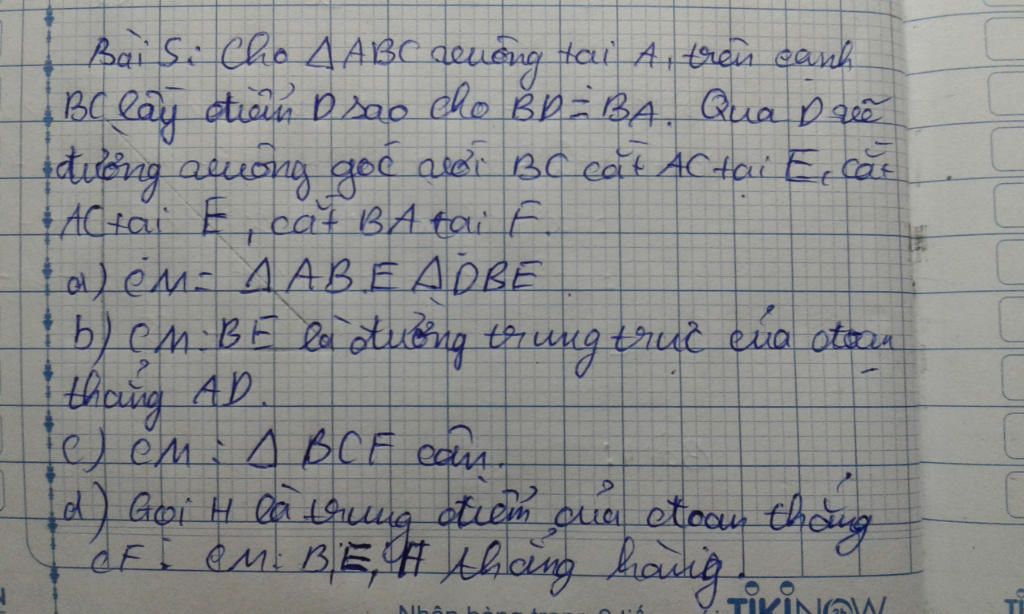 Bài 5: Cho △ABC vuông tại A, trên cạnh
BC lấy điểm D sao cho BD = BA. Qua D vẽ
đường vuông góc với BC cắt AC tại E, cắt
AC tại E, cắt BA tại F.
a) CM = △ABE △DBE
b) CM: BE là đường trung trực của đoạn
thẳng AD.
c) CM: △BCF cân.
d) Gọi H là trung điểm của đoạn thẳng
CF: CM: B, E, H thẳng hàng.
TIKINOW